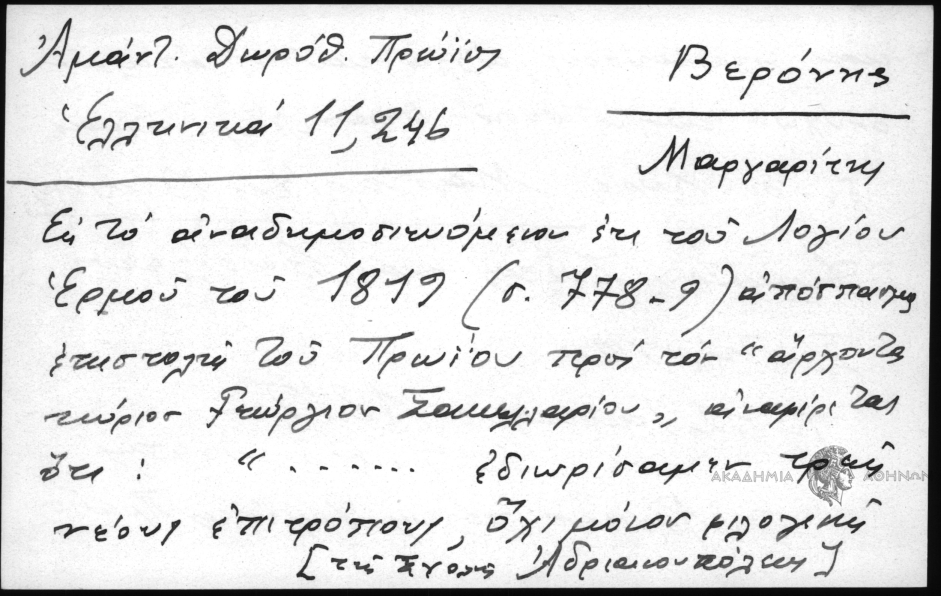 Ἀμάντ. Δωρόθ. Πρώϊος
Ἑλληνικά 11, 246
Βερόννης
Μαργαρίτης
Εἰς τό ἀναδημοσιευόμενον ἐκ τοῦ Λογίου
Ἑρμοῦ τοῦ 1819 (σ. 778-9) ἀπόσπασμα
ἐπιστολῆς τοῦ Πρωίου πρός τόν "ἄρχοντα
κύριον Γεώργιον Σακελλαρίου" ἀναφέρεται
ὅτι: "....... ἐδιωρίσαμεν τρεῖς
νέους ἐπιτρόπους, ὄχι μόνον φιλογενεῖς
[τῆς Σχολῆς Ἀδριανουπόλεως]
ΑΚΑΔΗΜΙΑ ΑΘΗΝΩΝ